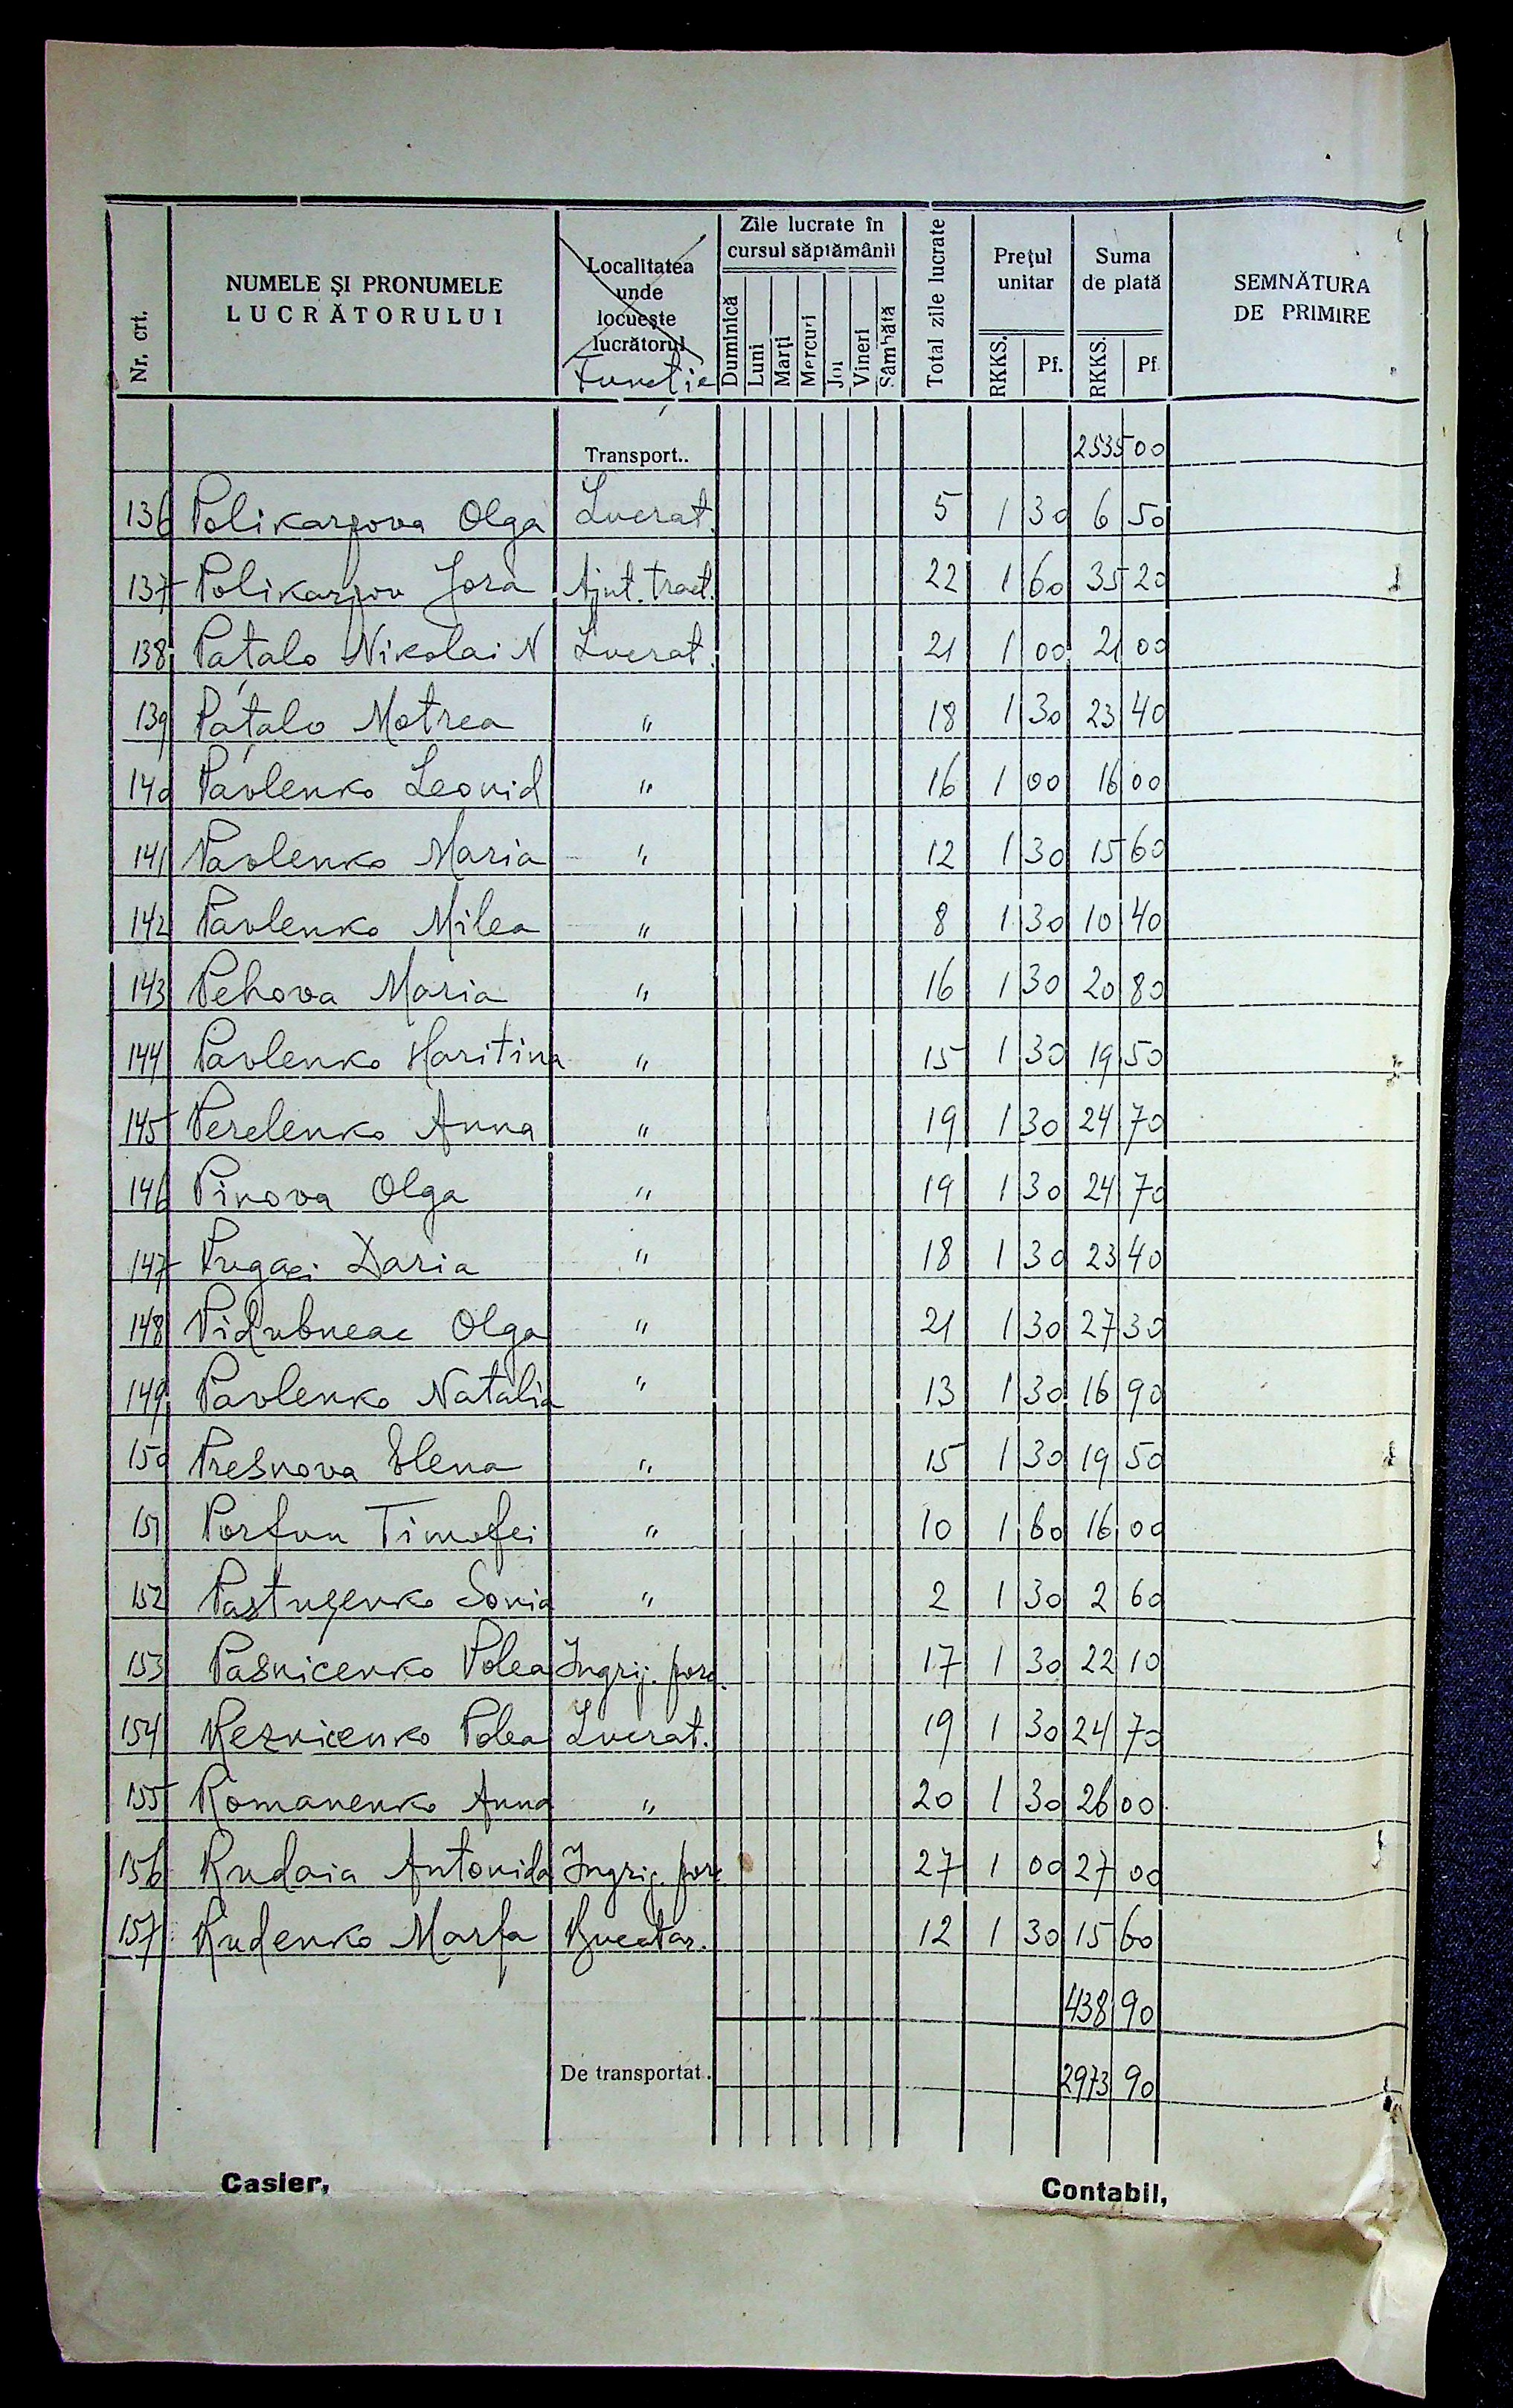 Nr. crt. NUMELE ŞI PRONUMELE LUCRĂTORULUI Localitatea unde locueşte lucrătorul Functie Zile lucrate în cursul săptămânii Duminică Luni Marţi Mercuri Joi Vineri Sâmbătă Total zile lucrate Preţul unitar RKKS. Pf. Suma de plată RKKS. Pf. SEMNĂTURA DE PRIMIRE
Transport.. 2535 00
136 Polikarpova Olga Lucrat. 5 1 30 6 50
137 Polikarpov Jora Ajut. tract. 22 1 60 35 20
138 Patalo Nikolai N Lucrat. 21 1 00 21 00
139 Patalo Motrea " 18 1 30 23 40
140 Pavlenko Leonid " 16 1 00 16 00
141 Pavlenko Maria " 12 1 30 15 60
142 Pavlenko Milea " 8 1 30 10 40
143 Pehova Maria " 16 1 30 20 80
144 Pavlenko Haritina " 15 1 30 19 50
145 Perelenko Anna " 19 1 30 24 70
146 Pinova Olga " 19 1 30 24 70
147 Pugaci Daria " 18 1 30 23 40
148 Pidubneac Olga " 21 1 30 27 30
149 Pavlenko Natalia " 13 1 30 16 90
150 Presnova Elena " 15 1 30 19 50
151 Porfun Timofei " 10 1 60 16 00
152 Pastuşenko Sonia " 2 1 30 2 60
153 Pasnicenko Polea Ingrij. porc. 17 1 30 22 10
154 Reznicenko Polea Lucrat. 19 1 30 24 70
155 Romanenko Anna " 20 1 30 26 00
156 Rudaia Antonida Ingrij. porc 27 1 00 27 00
157 Rudenko Marfa Bucatar. 12 1 30 15 60
438 90
De transportat. 2973 90
Casier, Contabil,